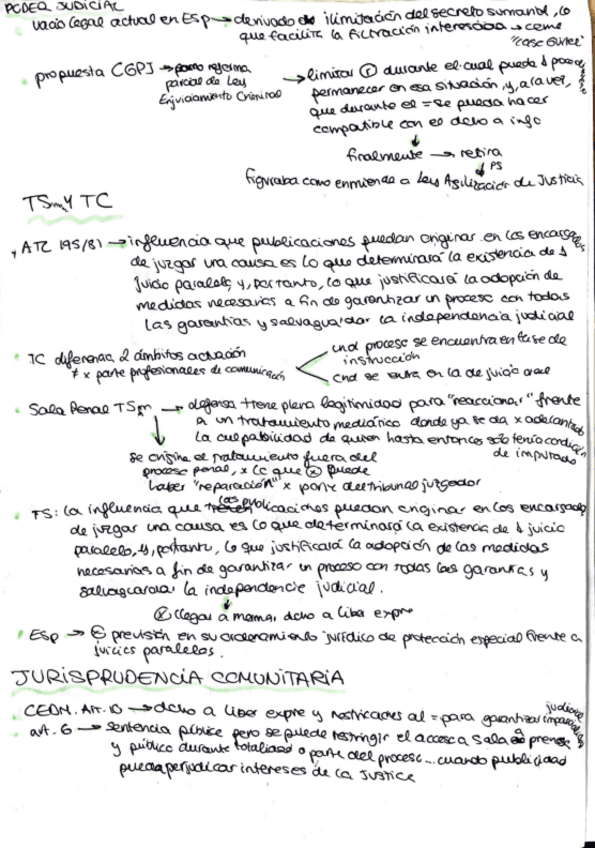 PODER JUDICIAL
vacío legal actual en Esp → derivado de ilimitación del secreto sumarial, lo
que facilita la filtración interesada → 
"caso Gürtel"
propuesta CGPJ → reforma
parcial de Ley
Enjuiciamiento Criminal
→ limitar durante el cual pueda
permanecer en esa situación, y, a la vez,
que durante el = se pueda hacer
compatible con el dcho a info
↓
finalmente → retira
↓ PS
figuraba como enmienda a Ley Agilización de Justicia
TS Y TC
ATC 195/81 → influencia que publicaciones puedan originar en los encargados
de juzgar una causa es lo que determinará la existencia de 1
juicio paralelo y, por tanto, lo que justificará la adopción de
medidas necesarias a fin de garantizar un proceso con todas
las garantías y salvaguardar la independencia judicial
TC diferencia 2 ámbitos actuación
≠ x parte profesionales de comunicación
cnd proceso se encuentra en fase de
instrucción
cnd se entra en la de juicio oral
Sala Penal TS → defensa tiene plena legitimidad para "reaccionar" frente
a un tratamiento mediático donde ya se da x adelantado
la culpabilidad de quien hasta entonces sólo tenía condición
de imputado
↓
se origina el tratamiento fuera del
proceso penal, x lo que puede
haber "reparación" x parte del tribunal juzgador
TS: la influencia que las publicaciones puedan originar en los encargados
de juzgar una causa es lo que determinará la existencia de 1 juicio
paralelo, y, por tanto, lo que justificará la adopción de las medidas
necesarias a fin de garantizar un proceso con todas las garantías y
salvaguardar la independencia judicial.
↓
llegar a mermar dcho a liber expre
Esp → previsión en su ordenamiento jurídico de protección especial frente a
juicios paralelos.
JURISPRUDENCIA COMUNITARIA
CEDH. Art. 10 → dcho a liber expre y restricciones al = para garantizar imparcialidad
judicial
art. 6 → sentencia pública pero se puede restringir el acceso a sala a prensa
y público durante totalidad o parte del proceso... cuando publicidad
pueda perjudicar intereses de la justicia